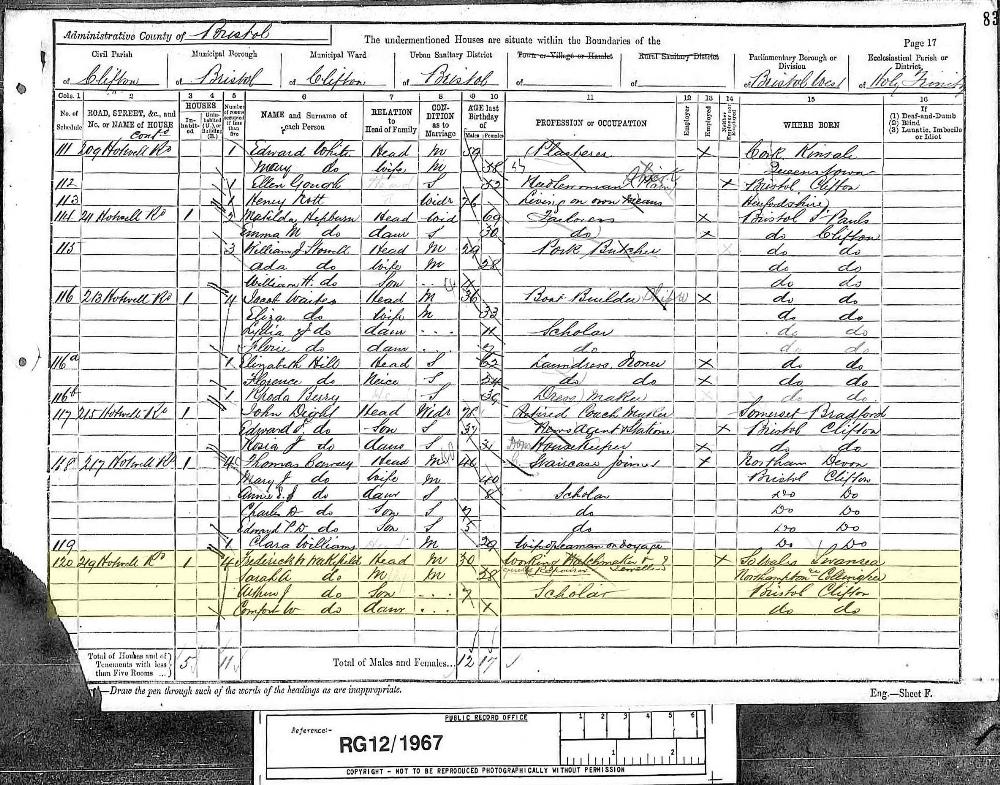 83
Administrative County of Bristol
The undermentioned Houses are situate within the Boundaries of the
Page 17
Civil Parish
Municipal Borough
Municipal Ward
Urban Sanitary District
Town or Village or Hamlet
Rural Sanitary District
Parliamentary Borough or Division
Ecclesiastical Parish or District
of Clifton
of Bristol
of Clifton
of Bristol
of
of
of Bristol West
of Holy Trinity
Cols. 1 2 3 4 5 6 7 8 9 10 11 12 13 14 15 16
No. of Schedule
ROAD, STREET, &c., and No. or NAME of HOUSE
HOUSES
Inhabited
Uninhabited (U.) or Building (B.)
Number of rooms occupied if less than five
NAME and Surname of each Person
RELATION to Head of Family
CONDITION as to Marriage
AGE last Birthday of
Males
Females
PROFESSION or OCCUPATION
Employer
Employed
Neither
WHERE BORN
If
(1) Deaf-and-Dumb
(2) Blind
(3) Lunatic, Imbecile or Idiot
111 209 Hotwell Rd 1 Edward White Head M 59 Plasterer X Cork Kinsale
Mary do wife M 38 Queenstown
112 1 Ellen S 52 X Bristol Clifton
113 1 Henry Widr 76 Living on own Means Herefordshire
114 211 Hotwell Rd 1 2 Matilda Hepburn Head Wid 69 Tailoress X Bristol St Pauls
Emma M do daur S 30 do X do Clifton
115 3 William J Head M 29 Pork Butcher do do
Ada do wife M 28 do do
William H. do Son do do
116 213 Hotwell Rd 1 4 Head M 36 Boat Builder X do do
Eliza do wife M 33 do do
Lydia J do daur 11 Scholar do do
do daur 7 do do do
116a 1 Elizabeth Hill Head S 62 Laundress X do do
Florence do Neice S 24 do do X do do
116b 1 Berry S 39 Dress Maker do do
117 215 Hotwell Rd 1 John Dight Head Widr 76 Retired Coach Maker Somerset Bradford
Edward J. do Son S 37 News Agent & Stationer X Bristol Clifton
Rosia J do daur S 31 Housekeeper X do do
118 217 Hotwell Rd 1 4 Thomas Head M 46 Staircase Joiner X Northam Devon
Mary J do wife M 40 Bristol Clifton
Annie do daur S 8 Scholar Do Do
Charles D do Son S 7 do Do Do
Edward P.D do Son S 5 do Do Do
119 1 Clara Williams M 29 Wife of seaman on voyage Do Do
120 219 Hotwell Rd 1 4 Frederick W Wakefield Head M 30 Working Watchmaker & X So Wales Swansea
Sarah do M 28 Repairer Jewellers Northampton
J do Son 7 Scholar Bristol Clifton
Comfort W do daur do do
Total of Houses and Tenements with less than Five Rooms ... 5 11
Total of Males and Females... 12 17
—Draw the pen through such of the words of the headings as are inappropriate.
Eng.—Sheet F.
PUBLIC RECORD OFFICE
Reference:-
RG12/1967
1 2 3 4 5 6
1 2
COPYRIGHT - NOT TO BE REPRODUCED PHOTOGRAPHICALLY WITHOUT PERMISSION